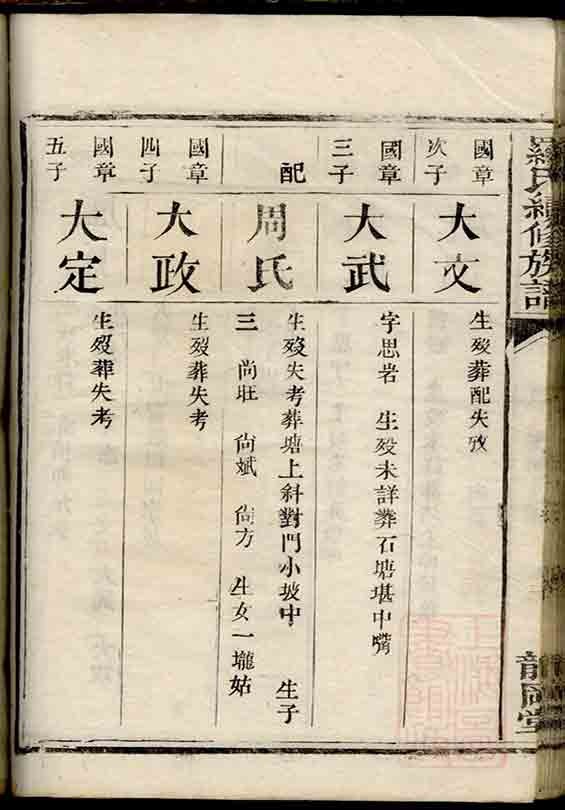 羅氏續修族譜
龍岡堂
國章
次子
大文
生殁葬配失攷
國章
三子
大武
字思岩 生殁未詳葬石塘堪中嘴
配
周氏
生殁失考葬塘上斜對門小坡中 生子
三 尚旺 尚斌 尚方 生女一壠姑
國章
四子
大政
生殁葬失考
國章
五子
大定
生殁葬失考